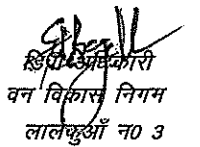 डिपो अधिकारी
वन विकास निगम
लालकुआँ न0 3